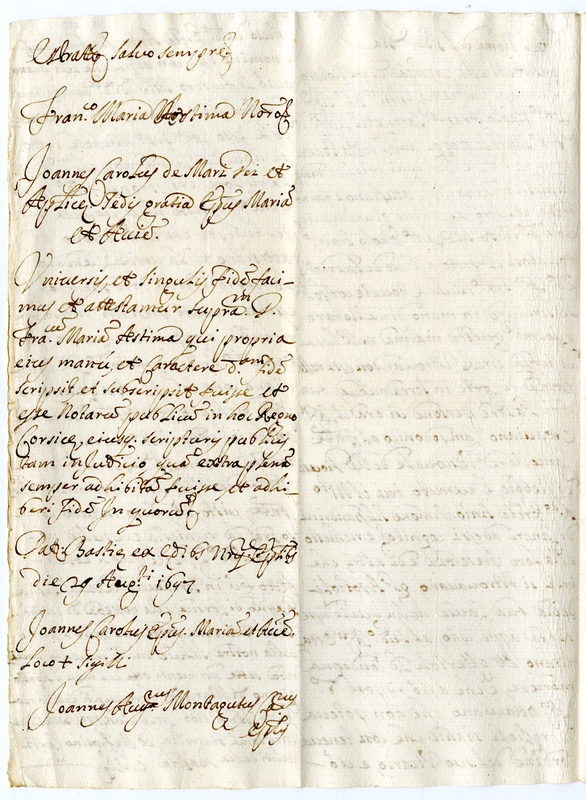 Estratto salvo sempre
Fran.co Maria Astima Notro
Joannes Carolus de Mari Dei et
Aplicę Sedis gratia Epus Marian
et Accien.
Universis, et singulis fidē faci-
mus et attestamur supram D.
Fra.cum Mariā Astima qui propria
eius manu, et caractere d.am fidē
scripsit et subscripsit fuisse et
esse Notariū publicū in hoc Regno
Corsicę, eiusq. scripturis publicis
tam in Judicio quā extra plenā
semper adhibitā fuisse, et adhi-
beri fidē In quorum
Dat. Bastię ex edibs
die 29 Augti 1697
Joannes Carolus Epus Marian et Accien.
Loco + Sigilli
Joannes Aug.nus Montagutus